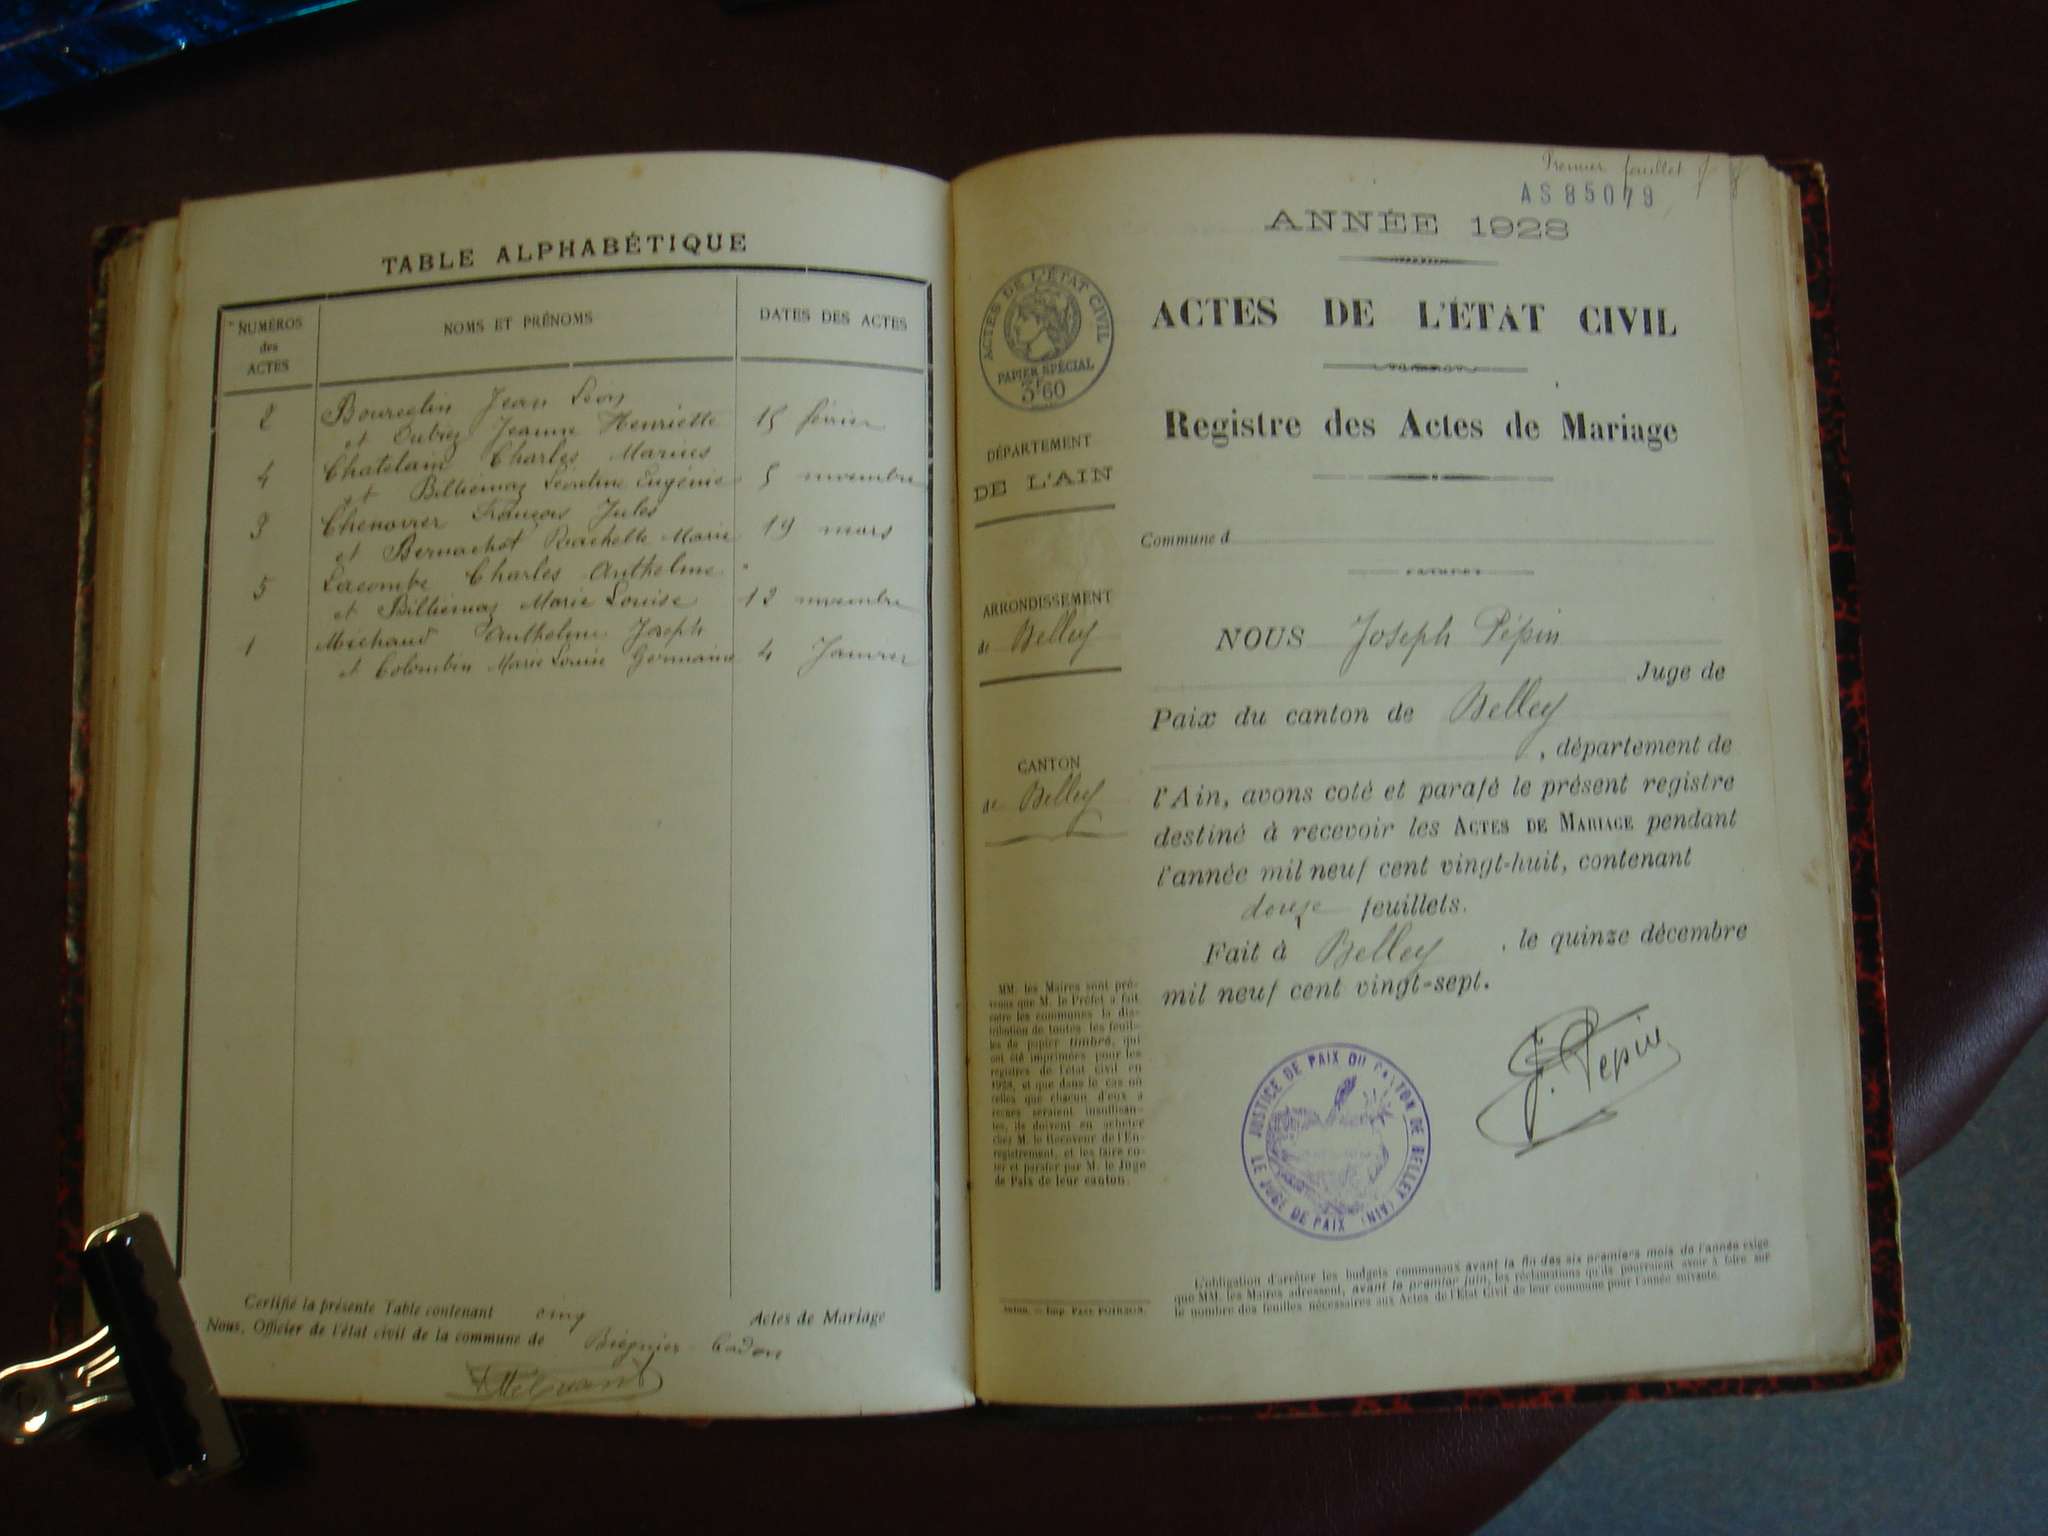 TABLE ALPHABÉTIQUE
NUMÉROS
des
ACTES
NOMS ET PRÉNOMS
DATES DES ACTES
2 Bourdin Jean Léon
et Dubiez Jeanne Henriette 15 février
4 Chatelain Charles Marius
et Billiemaz Léontine Eugénie 5 novembre
3 Chenavier François Jules
et Bernachot Rachelle Marie 19 mars
5 Lacombe Charles Anthelme
et Billiemaz Marie Louise 12 novembre
1 Michaud Anthelme Joseph
et Colombin Marie Louise Germaine 4 Janvier
Certifié la présente Table contenant cinq Actes de Mariage
Nous, Officier de l'état civil de la commune de Brégnier-Cordon
Premier feuillet
AS 85079
ANNÉE 1928
ACTES DE L'ÉTAT CIVIL
PAPIER SPÉCIAL
3F60
DÉPARTEMENT
DE L'AIN
ARRONDISSEMENT
de Belley
CANTON
de Belley
MM. les Maires sont pré-
venus que M. le Préfet a fait
entre les communes la dis-
tribution de toutes les feuil-
les de papier timbré, qui
ont été imprimées pour les
registres de l'état civil en
1928, et que dans le cas où
celles que chacun d'eux a
reçues seraient insuffisan-
tes, ils doivent en acheter
chez M. le Receveur de l'En-
registrement, et les faire co-
ter et parafer par M. le Juge
de Paix de leur canton.
ACTES DE L'ÉTAT CIVIL
Registre des Actes de Mariage
Commune d
NOUS Joseph Pépin
Juge de
Paix du canton de Belley
, département de
l'Ain, avons coté et parafé le présent registre
destiné à recevoir les ACTES DE MARIAGE pendant
l'année mil neuf cent vingt-huit, contenant
douze feuillets.
Fait à Belley, le quinze décembre
mil neuf cent vingt-sept.
J. Pepin
JUSTICE DE PAIX DU CANTON DE BELLEY (AIN)
LE JUGE DE PAIX
L'obligation d'arrêter les budgets communaux avant la fin des six premiers mois de l'année exige
que MM. les Maires adressent, avant le premier juin, les réclamations qu'ils pourraient avoir à faire sur
le nombre des feuilles nécessaires aux Actes de l'État Civil de leur commune pour l'année suivante.